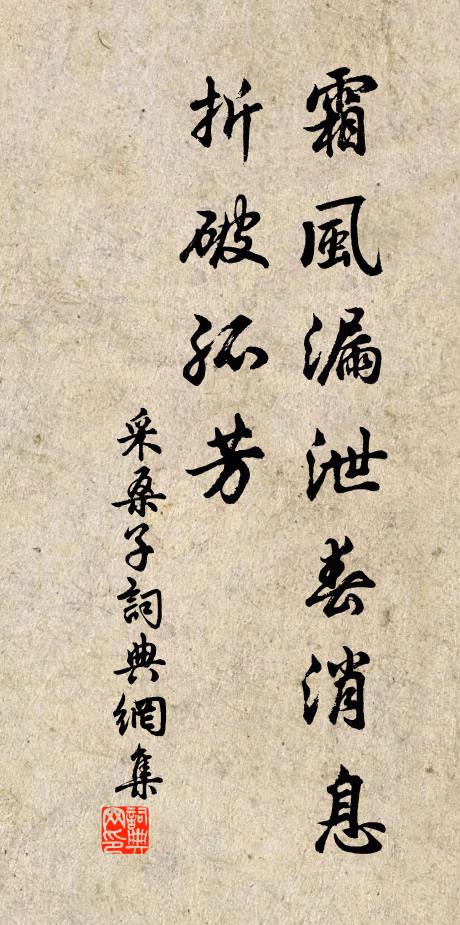 霜風漏泄春消息
折破孤芳
采桑子詞典網集
詞典网印